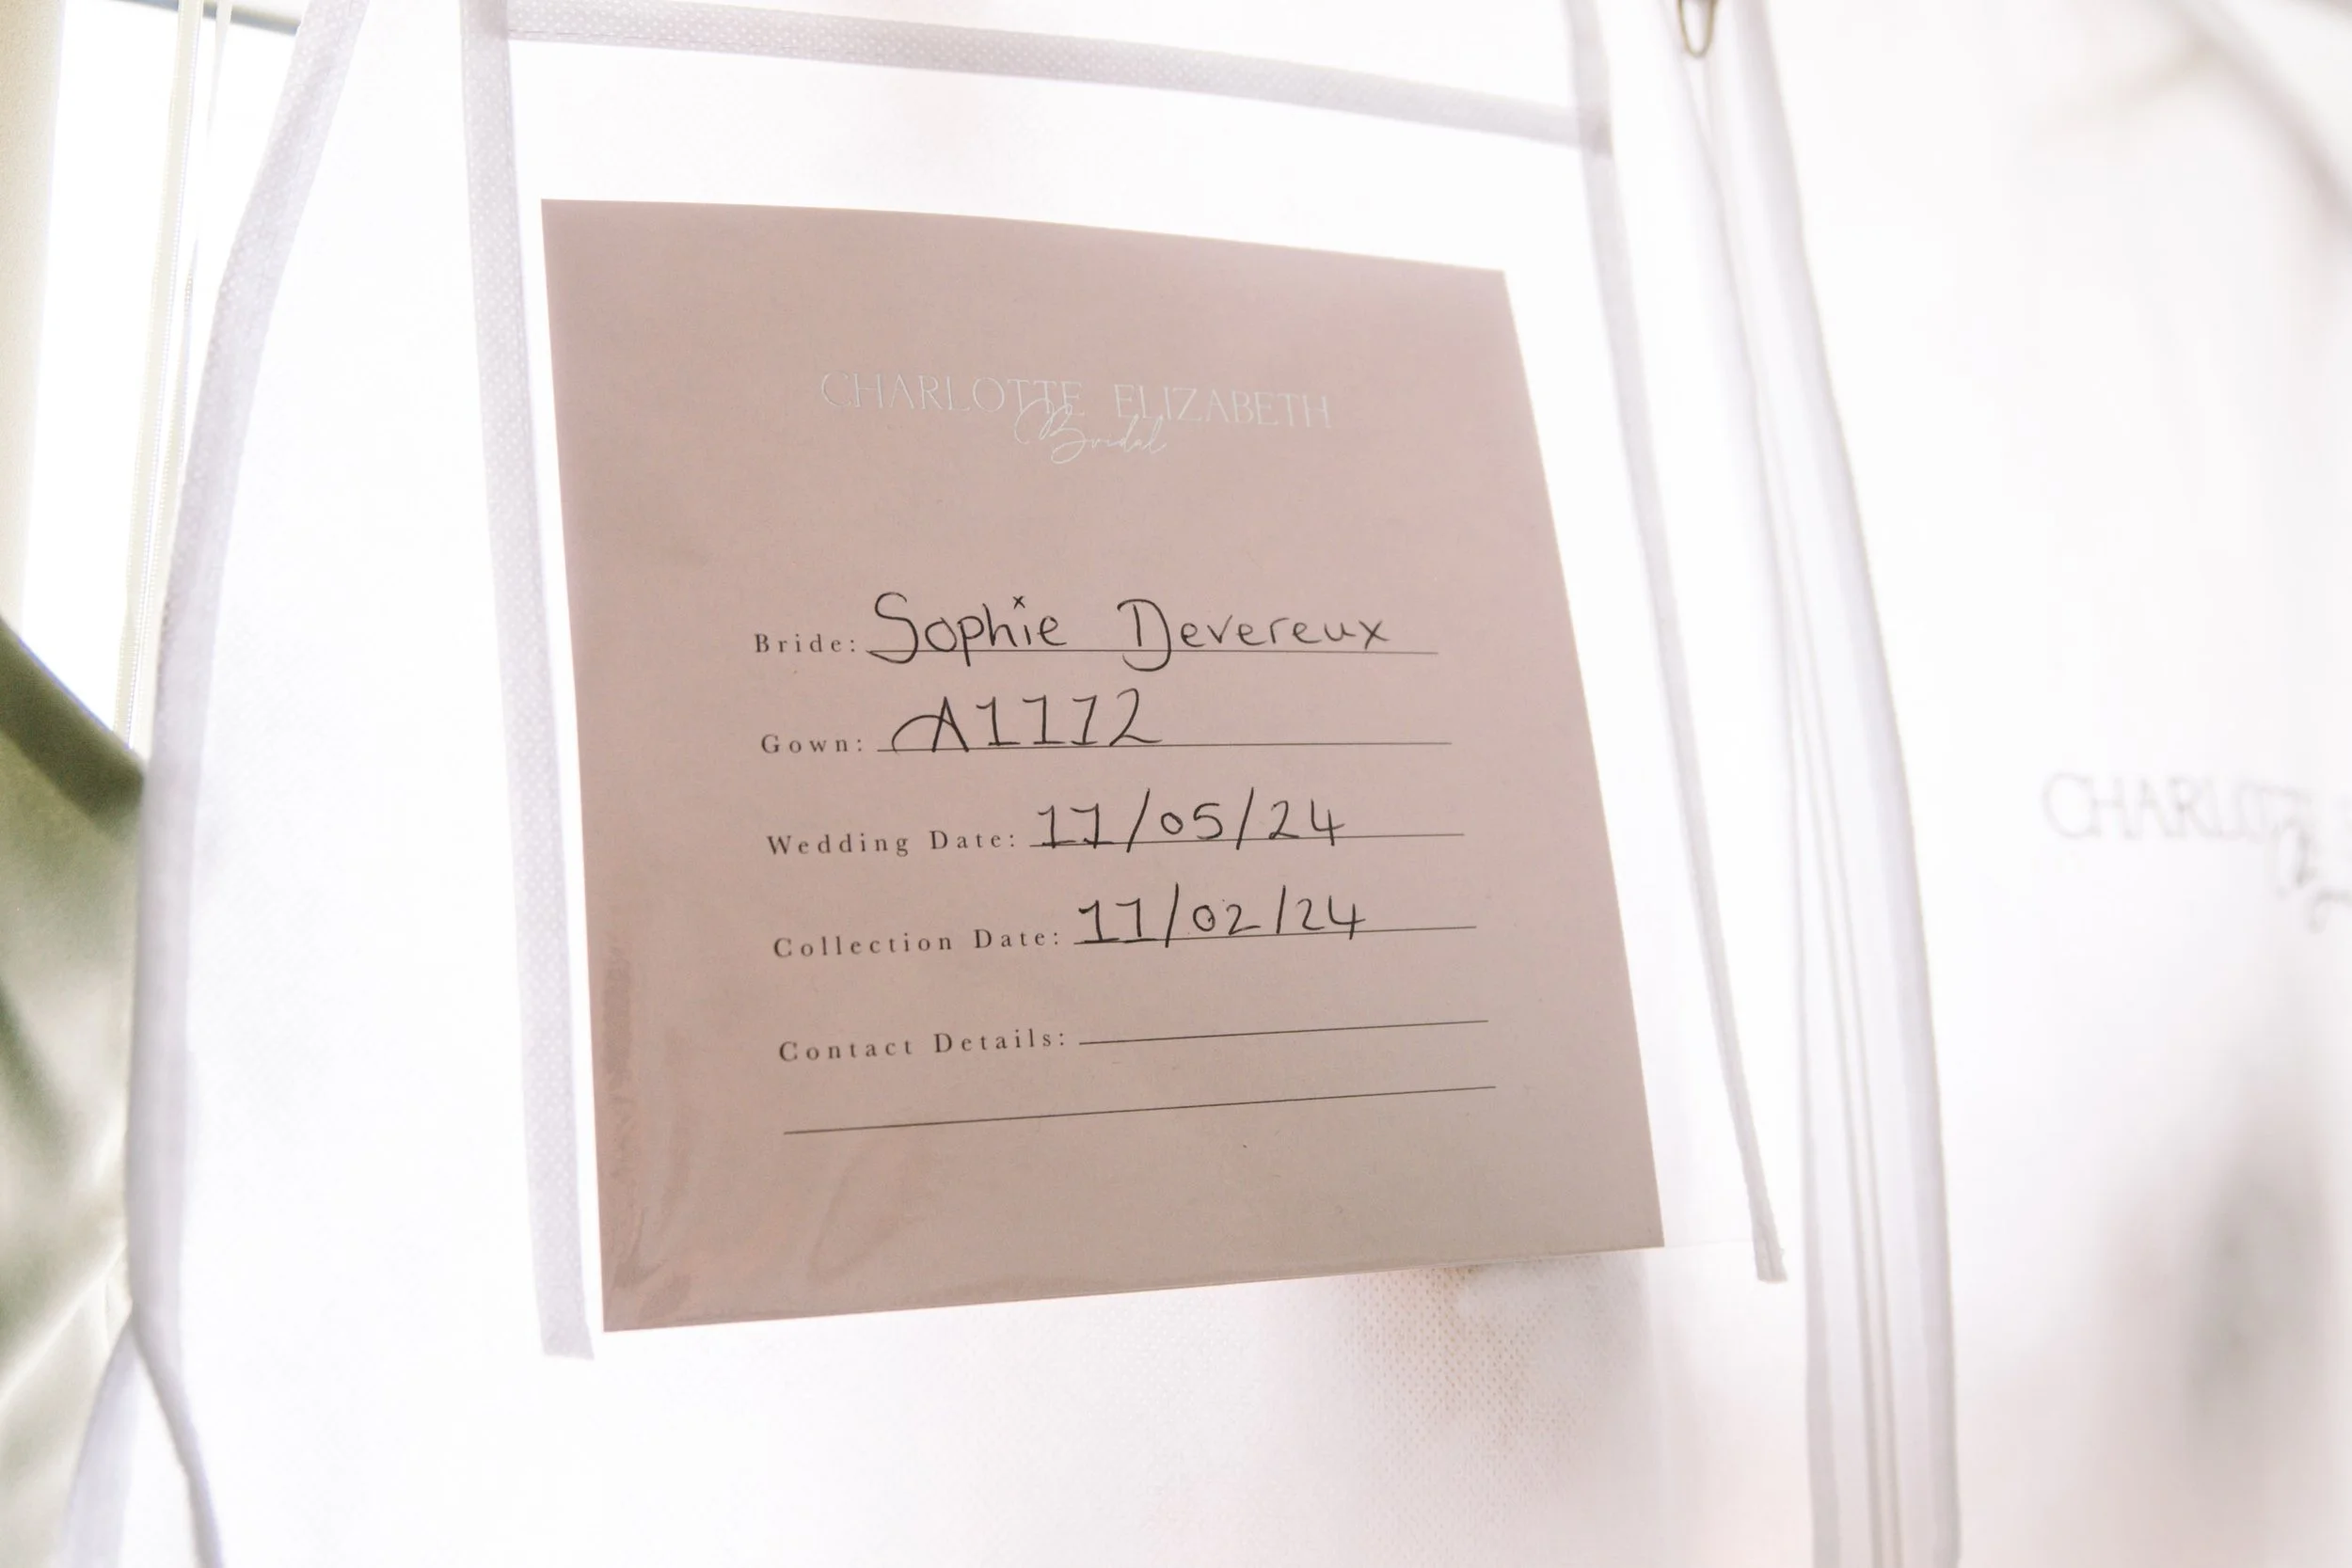 CHARLOTTE ELIZABETH
Bridal
Bride: Sophie Devereux
Gown: A1112
Wedding Date: 11/05/24
Collection Date: 11/02/24
Contact Details:
CHARLOTTE